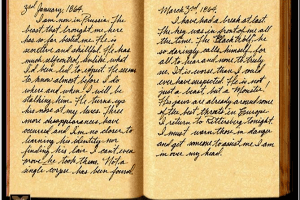 3rd January, 1864.
I am now in Russia. The
beast that brought me here
has so far eluded me. He is
secretive and skillful. He has
much
what
I'd him to repeat. He seems
to know almost before I do
where and when I will be
stalking him. He turns up
his nose at my lures. Three
more disappearances have
occured and I'm no closer to
learning his identity nor
finding his lair. I can't even
prove he took them. Not a
single corpse has been found.
March 3rd, 1864.
I have had a break at last.
The key was in front of me all
the time. The
so daringly calls himself, for
all to hear and none to truly
see. It is worse than I could
ever have suspected. He is not
just a beast, but a Monster.
His jaws are already around some
of the best throats in Europe.
I return to Rittersberg tonight.
I must warn those in danger
and get someone to assist me. I am
in over my head.